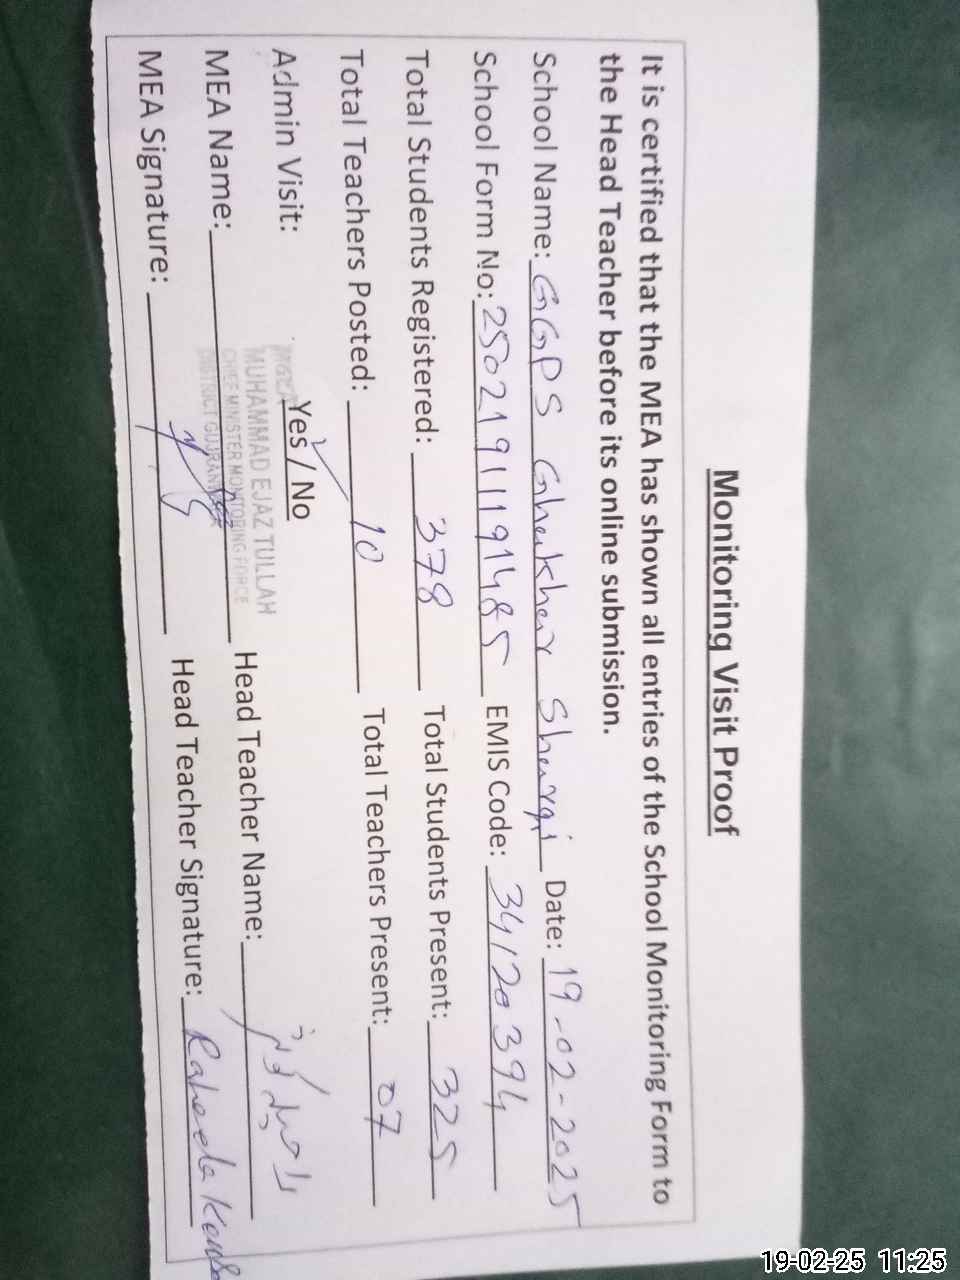 Monitoring Visit Proof
It is certified that the MEA has shown all entries of the School Monitoring Form to
the Head Teacher before its online submission.
School Name: GGPS Ghakhar Sharqi Date: 19-02-2025
School Form No: 25021911191485 EMIS Code: 34120394
Total Students Registered: 378 Total Students Present: 325
Total Teachers Posted: 10 Total Teachers Present: 07
Admin Visit: Yes / No
MUHAMMAD EJAZ TULLAH
CHIEF MINISTER MONITORING FORCE
DISTRICT GUJRANWALA
MEA Name: Head Teacher Name:
MEA Signature: Head Teacher Signature: Raheela
19-02-25 11:25